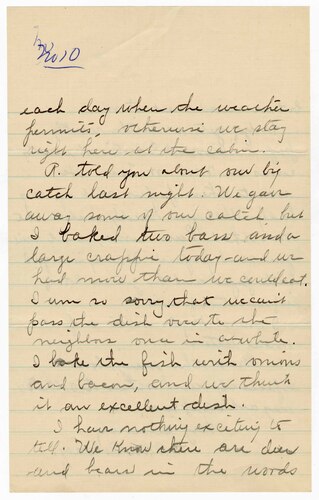 each day when the weather
permits, otherwise we stay
right here at the cabin.
R. told you about our big
catch last night. We gave
away some of our catch but
I baked two bass and a
large crappie today and we
had more than we could eat.
I am so sorry that we can't
pass the dish over to the
neighbors once in a while.
I bake the fish with onions
and bacon, and we think
it an excellent dish.
I have nothing exciting to
tell. We know there are deer
and bears in the woods